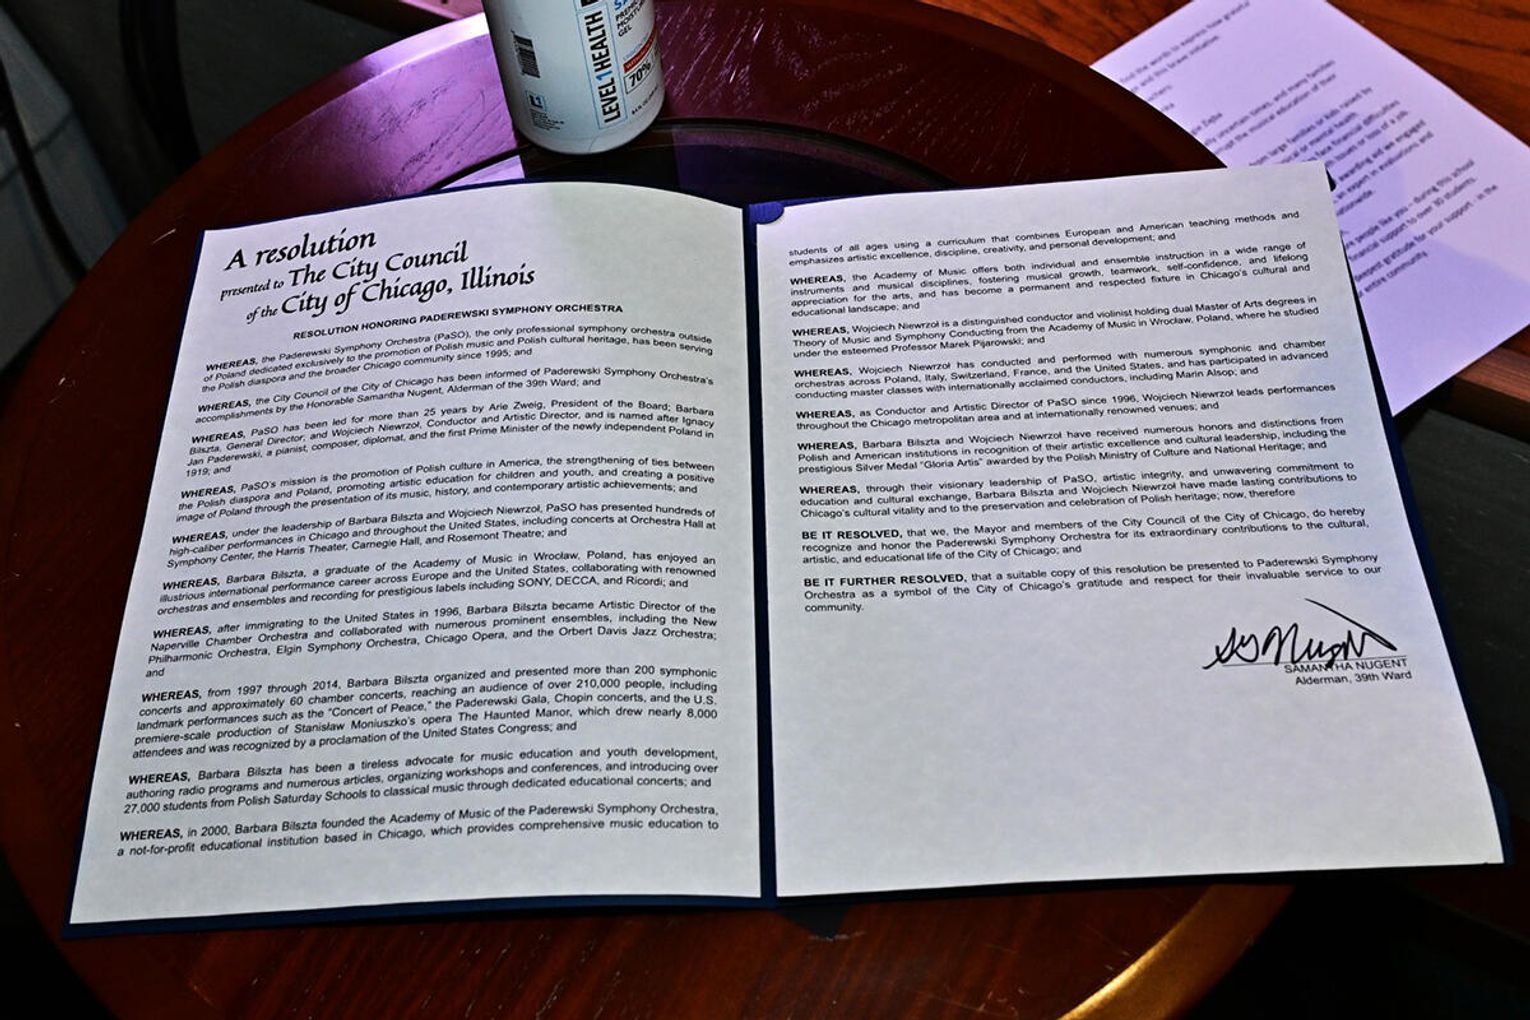 LEVEL1HEALTH
PREMIUM
MOISTURIZING
GEL
70%
A resolution
presented to The City Council
of the City of Chicago, Illinois
RESOLUTION HONORING PADEREWSKI SYMPHONY ORCHESTRA
WHEREAS, the Paderewski Symphony Orchestra (PaSO), the only professional symphony orchestra outside
of Poland dedicated exclusively to the promotion of Polish music and Polish cultural heritage, has been serving
the Polish diaspora and the broader Chicago community since 1995; and
WHEREAS, the City Council of the City of Chicago has been informed of Paderewski Symphony Orchestra's
accomplishments by the Honorable Samantha Nugent, Alderman of the 39th Ward; and
WHEREAS, PaSO has been led for more than 25 years by Arie Zweig, President of the Board; Barbara
Bilszta, General Director; and Wojciech Niewrzol, Conductor and Artistic Director, and is named after Ignacy
Jan Paderewski, a pianist, composer, diplomat, and the first Prime Minister of the newly independent Poland in
1919; and
WHEREAS, PaSO's mission is the promotion of Polish culture in America, the strengthening of ties between
the Polish diaspora and Poland, promoting artistic education for children and youth, and creating a positive
image of Poland through the presentation of its music, history, and contemporary artistic achievements; and
WHEREAS, under the leadership of Barbara Bilszta and Wojciech Niewrzol, PaSO has presented hundreds of
high-caliber performances in Chicago and throughout the United States, including concerts at Orchestra Hall at
Symphony Center, the Harris Theater, Carnegie Hall, and Rosemont Theatre; and
WHEREAS, Barbara Bilszta, a graduate of the Academy of Music in Wrocław, Poland, has enjoyed an
illustrious international performance career across Europe and the United States, collaborating with renowned
orchestras and ensembles and recording for prestigious labels including SONY, DECCA, and Ricordi; and
WHEREAS, after immigrating to the United States in 1996, Barbara Bilszta became Artistic Director of the
Naperville Chamber Orchestra and collaborated with numerous prominent ensembles, including the New
Philharmonic Orchestra, Elgin Symphony Orchestra, Chicago Opera, and the Orbert Davis Jazz Orchestra;
and
WHEREAS, from 1997 through 2014, Barbara Bilszta organized and presented more than 200 symphonic
concerts and approximately 60 chamber concerts, reaching an audience of over 210,000 people, including
landmark performances such as the "Concert of Peace," the Paderewski Gala, Chopin concerts, and the U.S.
premiere-scale production of Stanisław Moniuszko's opera The Haunted Manor, which drew nearly 8,000
attendees and was recognized by a proclamation of the United States Congress; and
WHEREAS, Barbara Bilszta has been a tireless advocate for music education and youth development,
authoring radio programs and numerous articles, organizing workshops and conferences, and introducing over
27,000 students from Polish Saturday Schools to classical music through dedicated educational concerts; and
WHEREAS, in 2000, Barbara Bilszta founded the Academy of Music of the Paderewski Symphony Orchestra,
a not-for-profit educational institution based in Chicago, which provides comprehensive music education to
students of all ages using a curriculum that combines European and American teaching methods and
emphasizes artistic excellence, discipline, creativity, and personal development; and
WHEREAS, the Academy of Music offers both individual and ensemble instruction in a wide range of
instruments and musical disciplines, fostering musical growth, teamwork, self-confidence, and lifelong
appreciation for the arts, and has become a permanent and respected fixture in Chicago's cultural and
educational landscape; and
WHEREAS, Wojciech Niewrzol is a distinguished conductor and violinist holding dual Master of Arts degrees in
Theory of Music and Symphony Conducting from the Academy of Music in Wrocław, Poland, where he studied
under the esteemed Professor Marek Pijarowski; and
WHEREAS, Wojciech Niewrzol has conducted and performed with numerous symphonic and chamber
orchestras across Poland, Italy, Switzerland, France, and the United States, and has participated in advanced
conducting master classes with internationally acclaimed conductors, including Marin Alsop; and
WHEREAS, as Conductor and Artistic Director of PaSO since 1996, Wojciech Niewrzol leads performances
throughout the Chicago metropolitan area and at internationally renowned venues; and
WHEREAS, Barbara Bilszta and Wojciech Niewrzol have received numerous honors and distinctions from
Polish and American institutions in recognition of their artistic excellence and cultural leadership, including the
prestigious Silver Medal "Gloria Artis" awarded by the Polish Ministry of Culture and National Heritage; and
WHEREAS, through their visionary leadership of PaSO, artistic integrity, and unwavering commitment to
education and cultural exchange, Barbara Bilszta and Wojciech Niewrzol have made lasting contributions to
Chicago's cultural vitality and to the preservation and celebration of Polish heritage; now, therefore
BE IT RESOLVED, that we, the Mayor and members of the City Council of the City of Chicago, do hereby
recognize and honor the Paderewski Symphony Orchestra for its extraordinary contributions to the cultural,
artistic, and educational life of the City of Chicago; and
BE IT FURTHER RESOLVED, that a suitable copy of this resolution be presented to Paderewski Symphony
Orchestra as a symbol of the City of Chicago's gratitude and respect for their invaluable service to our
community.
SAMANTHA NUGENT
Alderman, 39th Ward
find the words to express how grateful
and this brave initiative
uncertain times, and many families
the musical education of their
large families or kids raised by
or mental health
face financial difficulties
issues or loss of a job.
awarding aid we engaged
an expert in evaluations and
people like you – during this school
financial support to over 30 students.
gratitude for your support - in the
entire community.